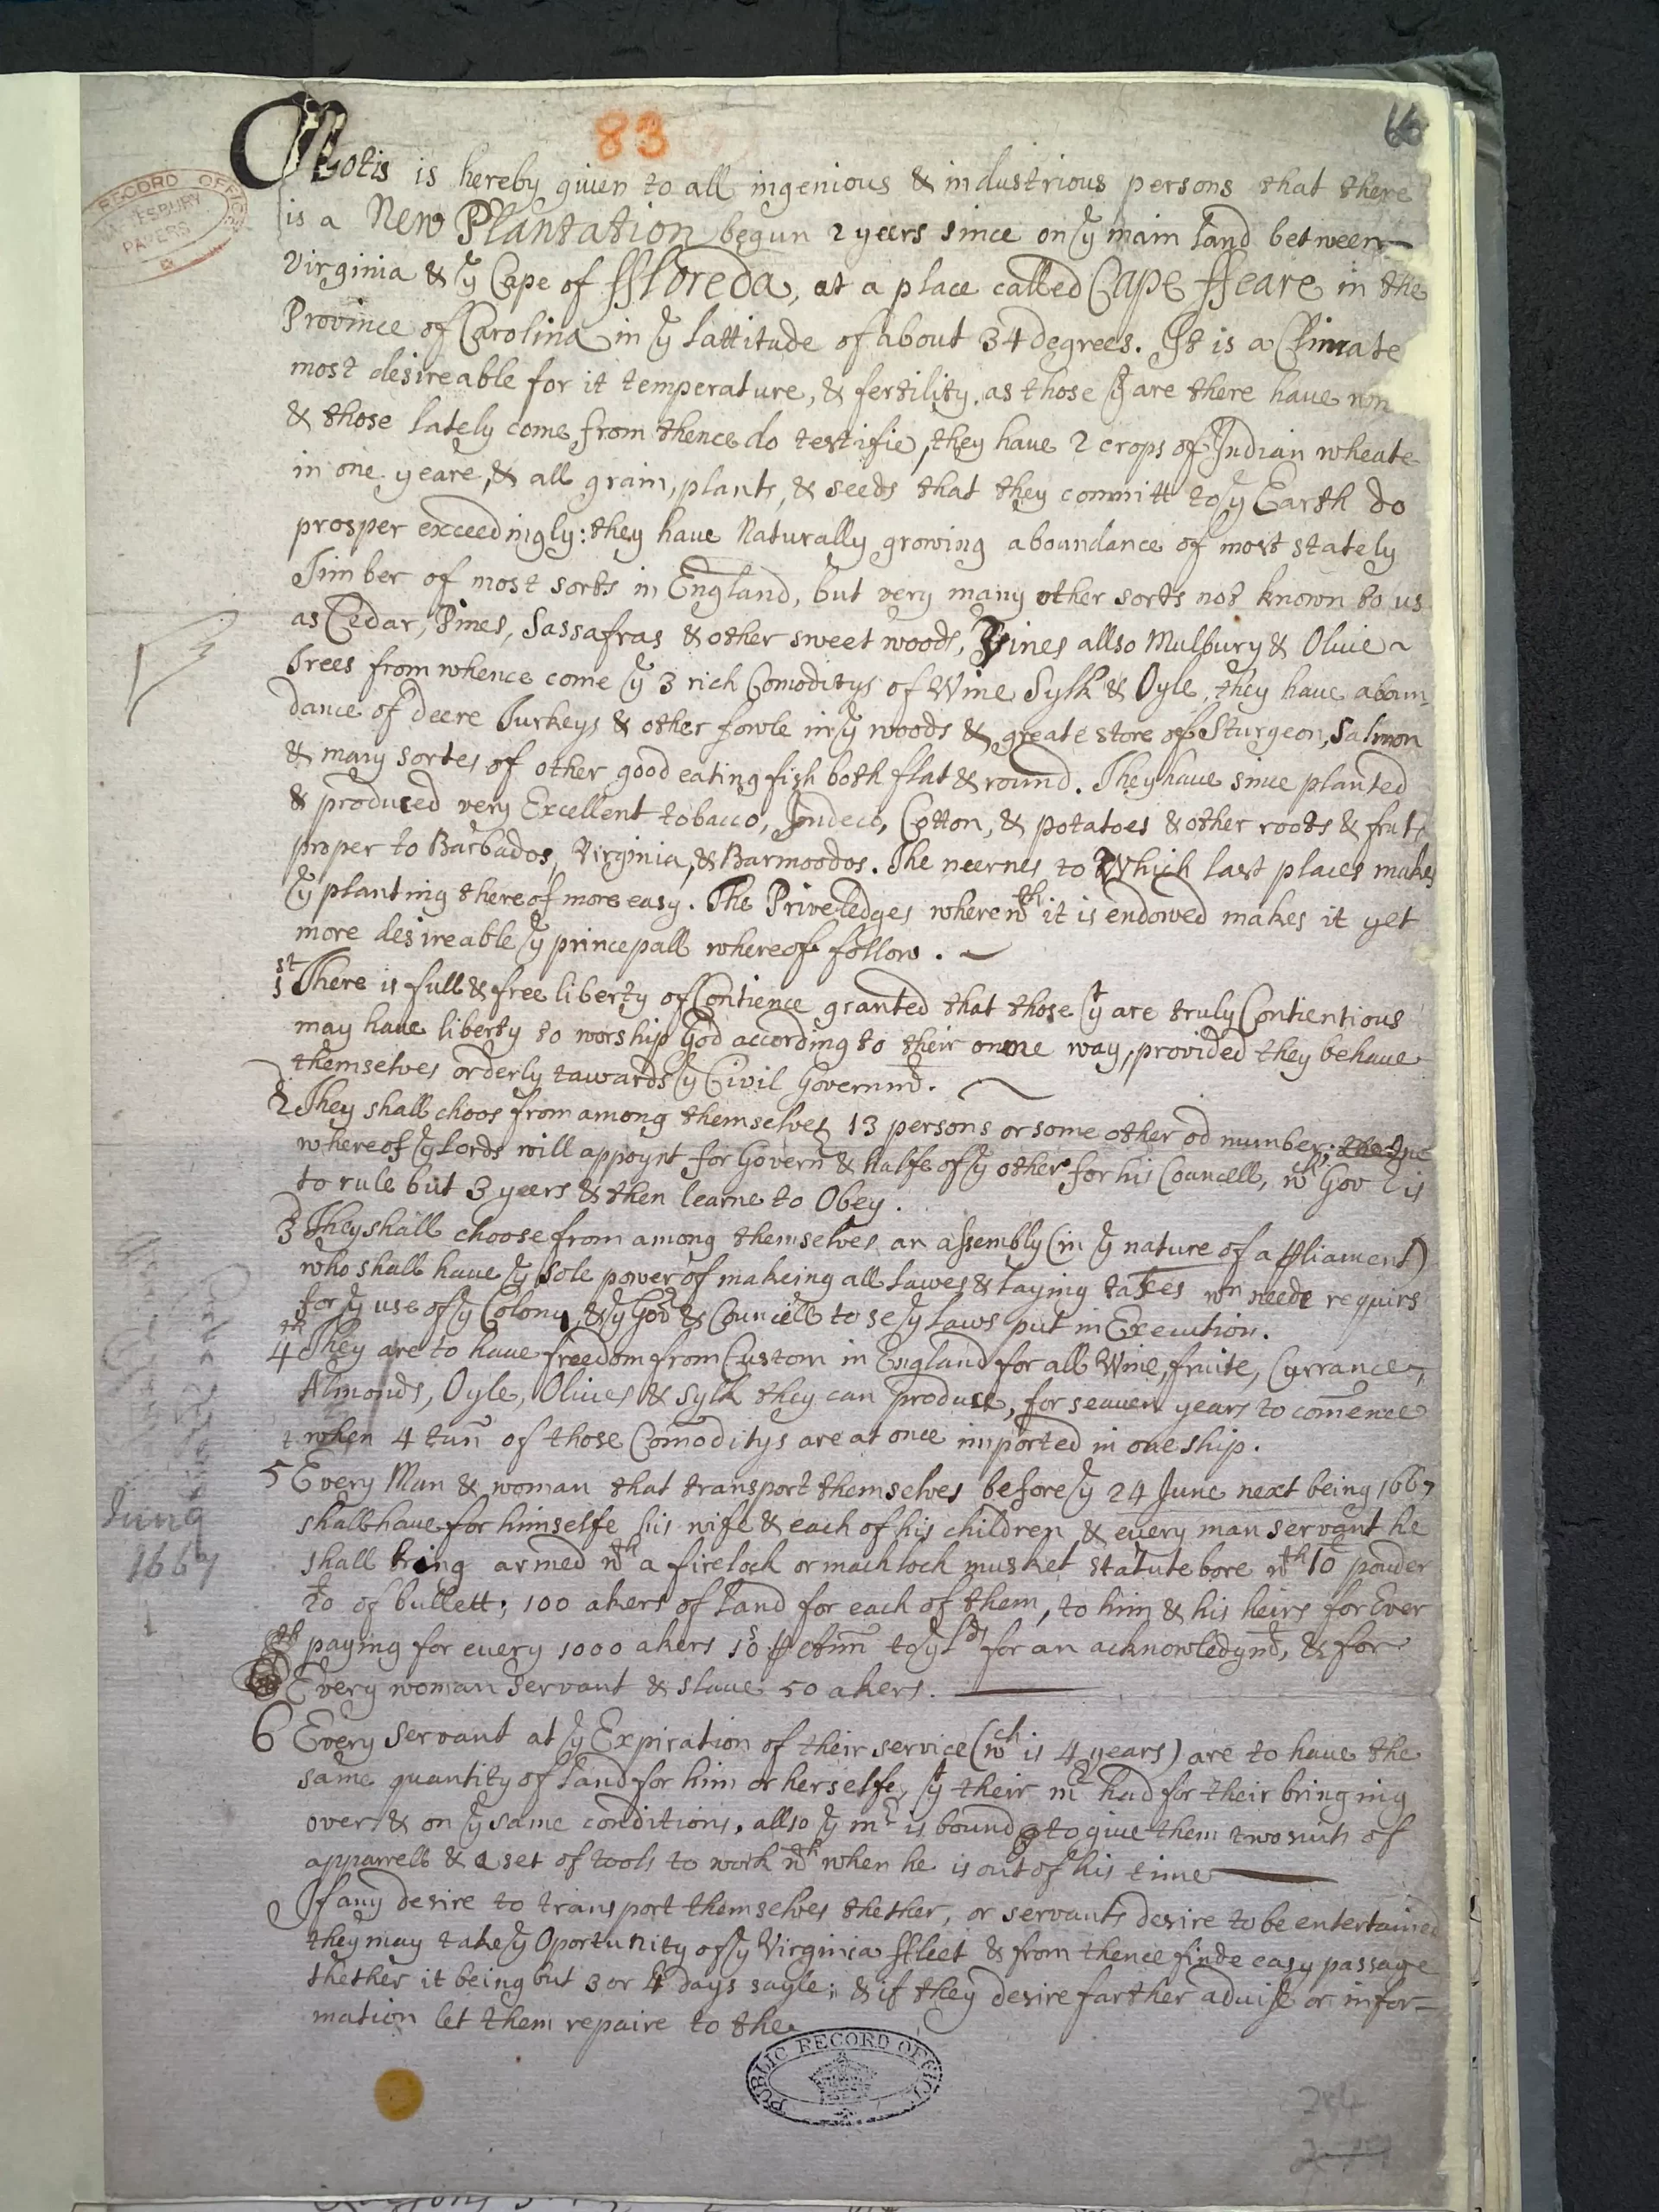 83
66
RECORD OFFICE
SHAFTESBURY
PAPERS
Notis is hereby given to all ingenious & industrious persons that there
is a New Plantation begun 2 yeers since on yͤ main Land between
Virginia & yͤ Cape of ffloreda, at a place called Cape ffeare in the
Province of Carolina in yͤ Lattitude of about 34 degrees. It is a Climate
most desireable for it temperature, & fertility, as those yͭ are there have
& those lately come from thence do testifie, they have 2 crops of Indian wheate
in one yeare, & all grain, plants, & seeds that they committ to yͤ Earth do
prosper exceedingly: they have Naturally growing aboundance of most stately
Timber of most sorts in England, but very many other sorts not known to us
as Cedar, Pines, Sassafras & other sweet woods, Vines allso Mulbury & Olive
Trees from whence come yͤ 3 rich Comoditys of Wine Sylk & Oyle, they have aboun-
dance of deere Turkeys & other fowle in yͤ woods & greate store of Sturgeon, Salmon
& many sortes of other good eating fish both flat & round. They have since planted
& produced very Excellent tobacco, Indeco, Cotton, & potatoes & other roots & fruts
proper to Barbados, Virginia, & Barmoodos. The neernes to Which last places makes
yͤ planting thereof more easy. The Priveledges wherewᵗʰ it is endowed makes it yet
more desireable yͤ princepall whereof follow.
1ˢᵗ There is full & free liberty of Contience granted that those yͭ are truly Contientious
may have liberty to worship God according to their owne way, provided they behave
themselves orderly tawards yͤ Civil Governmᵗ.
2 They shall choos from among themselves 13 persons or some other od number; one
whereof yͤ Lords will appoynt for Governʳ & halfe of yͤ other for his Councell, wᶜʰ Govʳ is
to rule but 3 yeers & then learne to Obey.
3ᵈ They shall choose from among themselves an assembly (in yͤ nature of a ꝑliament)
who shall have yͤ sole power of makeing all Lawes & laying taxes wⁿ neede requirs
for yͤ use of yͤ Colony, & yͤ Govʳ & Councell to se yͤ Laws put in Execution.
4ᵗʰ They are to have freedom from Custom in England for all Wine, fruite, Currance,
Almonds, Oyle, Olives & Sylk they can produce, for seaven years to com̄ence
when 4 tun̄ of those Com̄oditys are at once imported in one ship.
5 Every Man & woman that transport themselves before yͤ 24 June next being 1667
June
1667
shall have for himselfe his wife & each of his children & every man servant he
shall bring armed wᵗʰ a firelock or machlock musket statute bore wᵗʰ 10ˡ pouder
20ˡ of bullett; 100 akers of Land for each of them, to him & his heirs for Ever
paying for every 1000 akers 10ˢ ꝑ Añm to yͤ Lᵈˢ for an acknowledgmᵗ, & for
Every woman servant & slave 50 akers.
6 Every servant at yͤ Expiration of their service (wᶜʰ is 4 years) are to have the
same quantity of Land for him or herselfe, yͭ their mʳ had for their bringing
over & on yͤ same conditions, allso yͤ mʳ is bound to give them two suits of
apparrell & a set of tools to work wᵗʰ when he is out of his time
If any desire to transport themselves thether, or servants desire to be entertained
they may take yͤ Oportunity of yͤ Virginia ffleet & from thence finde easy passage
thether it being but 3 or 4 days sayle; & if they desire farther advise or infor-
mation let them repaire to the
PUBLIC RECORD OFFICE
284